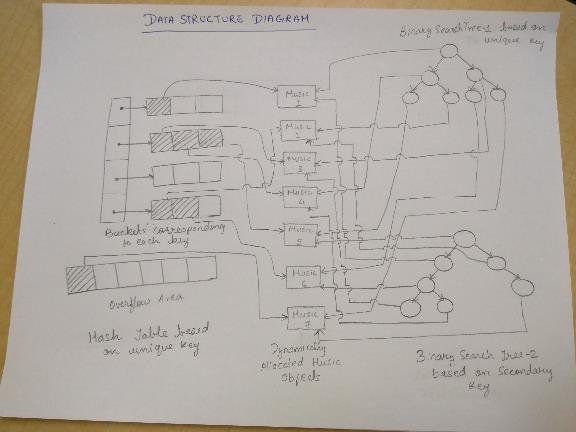 DATA STRUCTURE DIAGRAM
Binary Search Tree-1 based on
unique key
Music
1
Music
2
Music
3
Music
4
Music
5
Music
6
Music
7
Buckets corresponding
to each key
Overflow Area
Hash Table based
on unique key
Dynamically
allocated Music
Objects
Binary Search Tree-2
based on Secondary
key